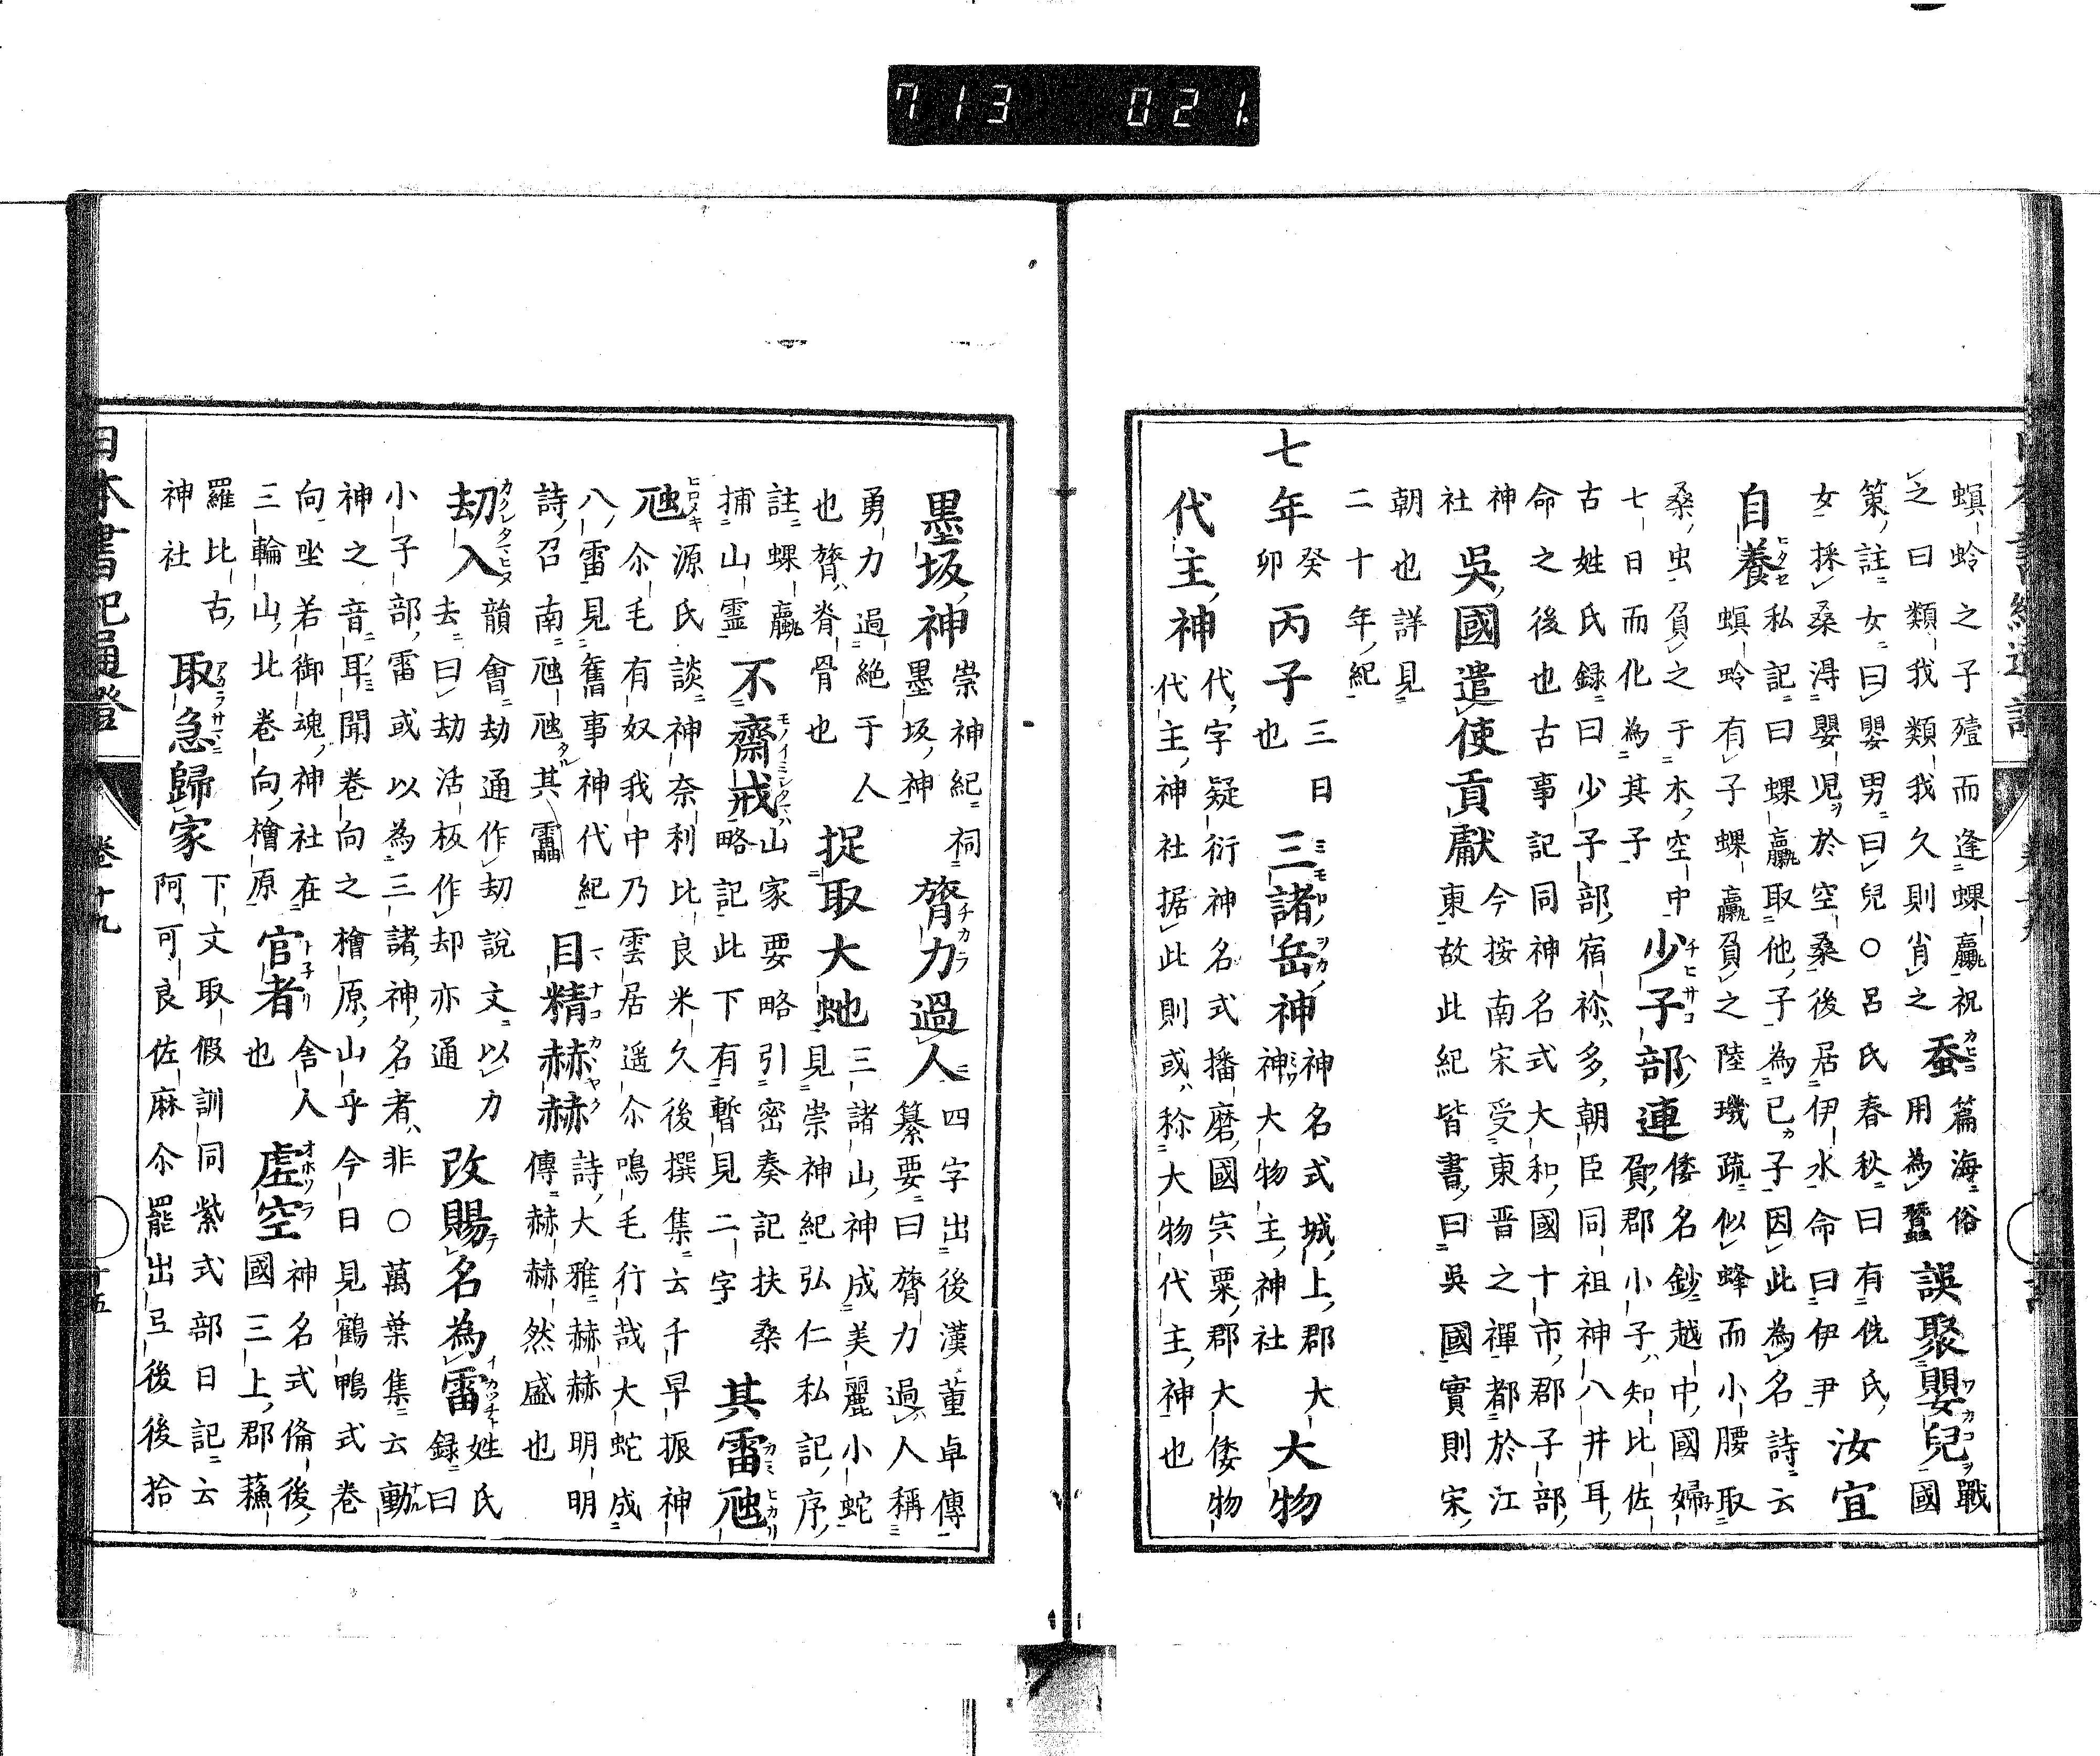 713 021
螟蛉之子殪而逢蜾蠃祝
之曰類我類我久則肖之
蚕
篇海俗
用為蠶
誤聚嬰兒
戰
國
策註女曰嬰男曰兒○呂氏春秋曰有侁氏
女採桑得嬰兒於空桑後居伊水命曰伊尹
汝宜
自養
私記曰蜾蠃取他子為己子因此為名詩云
螟蛉有子蜾蠃負之陸璣疏似蜂而小腰取
桑虫負之于木空中
七日而化為其子
少子部連
倭名鈔越中國婦
負郡小子知比佐
古姓氏録曰少子部宿祢多朝臣同祖神八井耳
命之後也古事記同神名式大和國十市郡子部
神
社
吳國遣使貢獻
今按南宋受東晋之禪都於江
東故此紀皆書曰吳國實則宋
朝也詳見
二十年紀
七年
癸
卯
丙子
三日
也
三諸岳神
神名式城上郡大
神大物主神社
大物
代主神
代字疑衍神名式播磨國宍粟郡大倭物
代主神社据此則或称大物代主神也
墨坂神
崇神紀祠
墨坂神
膂力過人
四字出後漢董卓傳
纂要曰膂力過人稱
勇力過絶于人
也膂脊骨也
捉取大虵
三諸山神成美麗小蛇
見崇神紀弘仁私記序
註蜾蠃
捕山霊
不齋戒
山家要略引密奏記扶桑
略記此下有暫見二字
其雷虺
虺
源氏談神奈利比良米久後撰集云千早振神
尓毛有奴我中乃雲居遥尓鳴毛行哉大蛇成
八雷見奮事神代紀
詩召南虺虺其靁
目精赫赫
詩大雅赫赫明明
傳赫赫然盛也
劫入
韻會劫通作刧說文以力
去曰劫活板作却亦通
改賜名為雷
姓氏
録曰
小子部雷或以為三諸神名者非○萬葉集云動
神之音耳聞巻向之檜原山乎今日見鶴鴨式巻
向坐若御魂神社在
三輪山北巻向檜原
官者
舎人
也
虚空
神名式備後
國三上郡蘇
羅比古
神社
取急歸家
下文取假訓同紫式部日記云
阿可良佐麻尓罷出弖後後拾
日本書紀通證 卷十九 十五